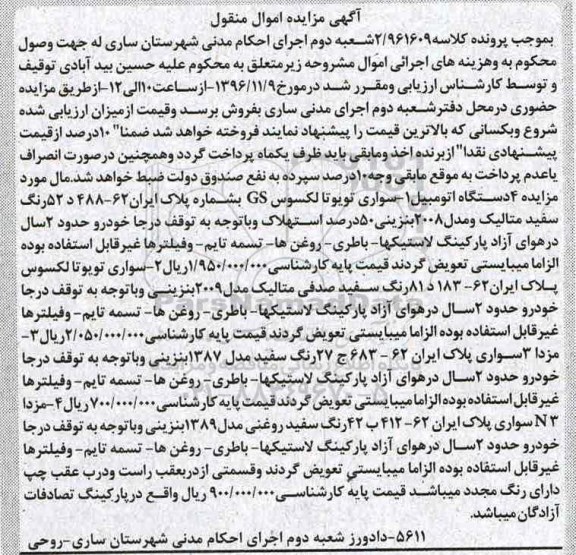 آگهی مزایده اموال منقول
بموجب پرونده کلاسه ۲/۹۶۱۶۰۹شعبه دوم اجرای احکام مدنی شهرستان ساری له جهت وصول
محکوم به وهزینه های اجرائی اموال مشروحه زیرمتعلق به محکوم علیه حسین بید آبادی توقیف
و توسط کارشناس ارزیابی ومقرر شد درمورخ۱۳۹۶/۱۱/۹-ازساعت۱۰الی۱۲-ازطریق مزایده
حضوری درمحل دفترشعبه دوم اجرای مدنی ساری بفروش برسد وقیمت ازمیزان ارزیابی شده
شروع وبکسانی که بالاترین قیمت را پیشنهاد نمایند فروخته خواهد شد ضمنا" ۱۰درصد ازقیمت
پیشنهادی نقدا" ازبرنده اخذ ومابقی باید ظرف یکماه پرداخت گردد وهمچنین درصورت انصراف
یاعدم پرداخت به موقع مابقی وجه۱۰درصد سپرده به نفع صندوق دولت ضبط خواهد شد.مال مورد
مزایده ۴دستگاه اتومبیل۱-سواری تویوتا لکسوس GS بشماره پلاک ایران۶۲-۴۸۸ د ۵۲رنگ
سفید متالیک ومدل۲۰۰۸بنزینی۵۰درصد استهلاک وباتوجه به توقف درجا خودرو حدود ۲سال
درهوای آزاد پارکینگ لاستیکها- باطری- روغن ها- تسمه تایم- وفیلترها غیرقابل استفاده بوده
الزاما میبایستی تعویض گردند قیمت پایه کارشناسی۱/۹۵۰/۰۰۰/۰۰۰ریال۲-سواری تویوتا لکسوس
پلاک ایران۶۲- ۱۸۳ د ۸۱رنگ سفید صدفی متالیک مدل۲۰۰۹بنزینی وباتوجه به توقف درجا
خودرو حدود ۲سال درهوای آزاد پارکینگ لاستیکها- باطری- روغن ها- تسمه تایم- وفیلترها
غیرقابل استفاده بوده الزاما میبایستی تعویض گردند قیمت پایه کارشناسی۲/۰۵۰/۰۰۰/۰۰۰ریال۳-
مزدا ۳سواری پلاک ایران ۶۲ - ۶۸۳ ج ۲۷رنگ سفید مدل ۱۳۸۷بنزینی وباتوجه به توقف درجا
خودرو حدود ۲سال درهوای آزاد پارکینگ لاستیکها- باطری- روغن ها- تسمه تایم- وفیلترها
غیرقابل استفاده بوده الزاما میبایستی تعویض گردند قیمت پایه کارشناسی۷۰۰/۰۰۰/۰۰۰ریال۴-مزدا
N۳ سواری پلاک ایران ۶۲-۴۱۲ ب ۴۲رنگ سفید روغنی مدل۱۳۸۹بنزینی وباتوجه به توقف درجا
خودرو حدود ۲سال درهوای آزاد پارکینگ لاستیکها- باطری- روغن ها- تسمه تایم- وفیلترها
غیرقابل استفاده بوده الزاما میبایستی تعویض گردند وقسمتی ازدربعقب راست ودرب عقب چپ
دارای رنگ مجدد میباشد قیمت پایه کارشناسی۹۰۰/۰۰۰/۰۰۰ ریال واقع درپارکینگ تصادفات
آزادگان میباشد.
۵۶۱۱-دادورز شعبه دوم اجرای احکام مدنی شهرستان ساری-روحی
ParsNamadData